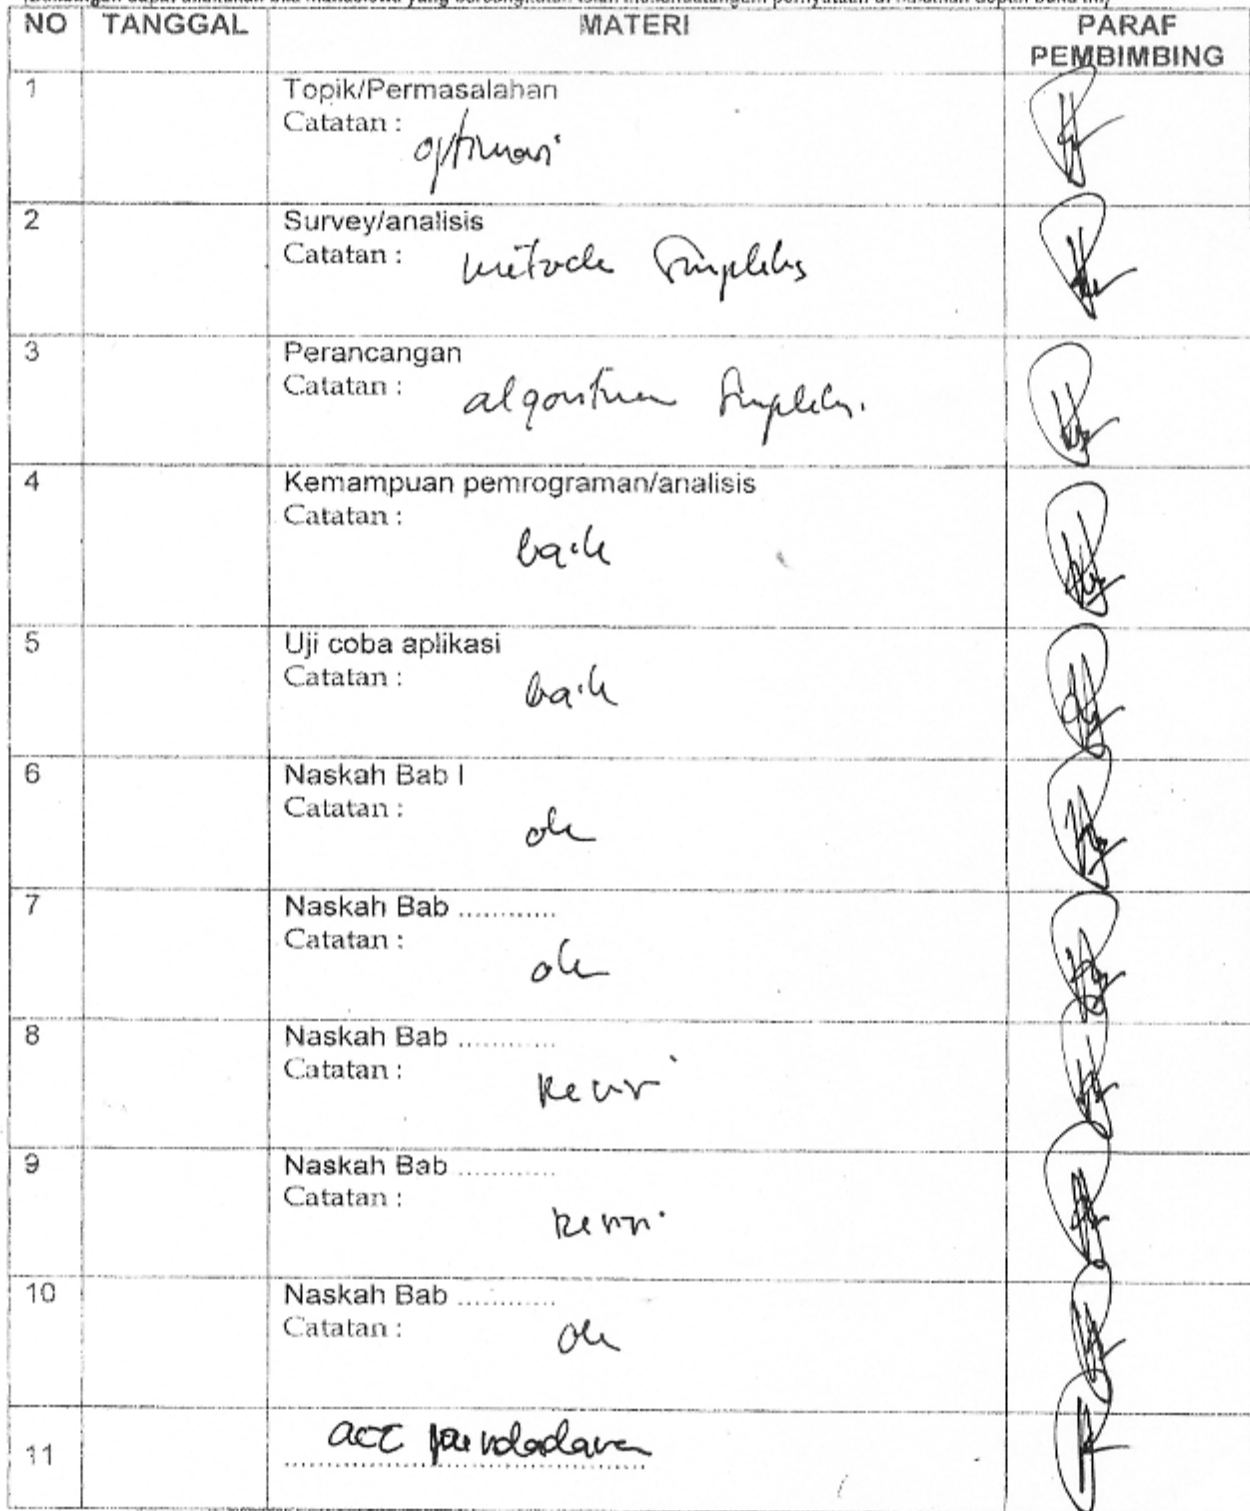 NO TANGGAL MATERI PARAF PEMBIMBING
1 Topik/Permasalahan
Catatan :
optimasi
2 Survey/analisis
Catatan : metode Simpleks
3 Perancangan
Catatan : algoritma Simpleks.
4 Kemampuan pemrograman/analisis
Catatan :
baik
5 Uji coba aplikasi
Catatan : baik
6 Naskah Bab I
Catatan : ok
7 Naskah Bab ............
Catatan : ok
8 Naskah Bab ............
Catatan : Revisi
9 Naskah Bab ............
Catatan : Revisi
10 Naskah Bab ............
Catatan : ok
11 acc pendadaran